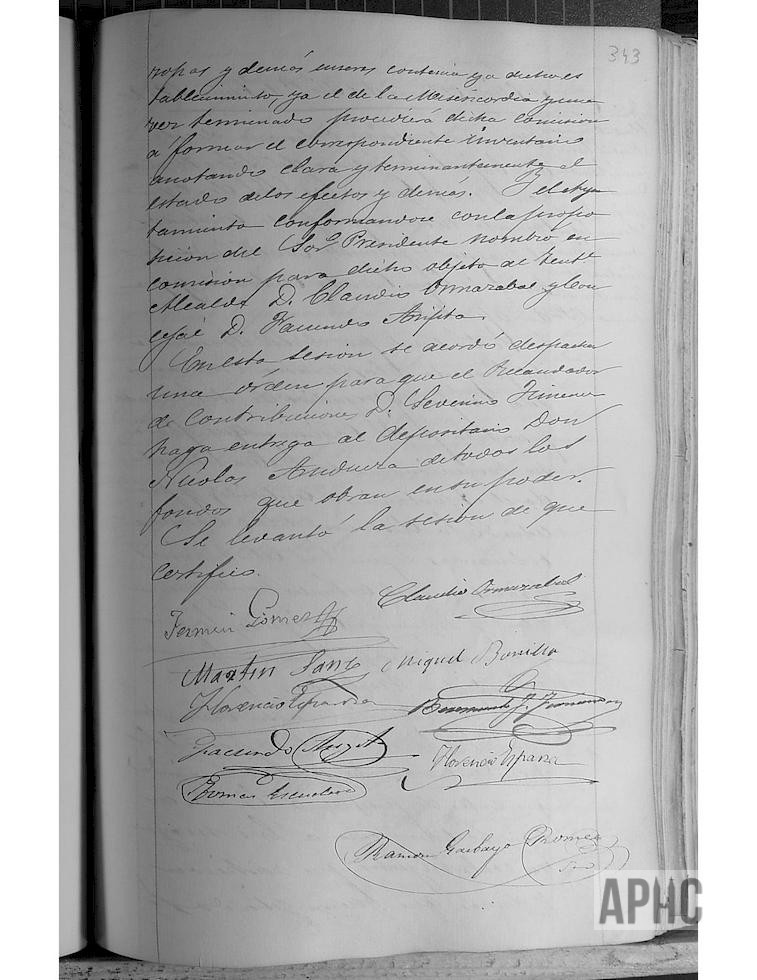 343
ropas y demás enseres contenia ya dicho es
tablecimiento, ya el de la Misericordia y una
vez terminado procediera dicha comision
a formar el correspondiente inventario
anotando clara y terminantemente el
estado de los efectos y demás. Y el Ayun
tamiento conformandose con la propo
sicion del Sor. Presidente nombró en
comision para dicho objeto al Tente
Alcalde D. Claudio Ormazabal y Con
cejal D. Facundo
En esta sesion se acordó despachar
una órden para que el Recaudador
de Contribuciones D. Severino Jimenez
haga entrega al depositario Don
Nicolas Andueza de todos los
fondos que obran en su poder.
Se levantó la sesion de que
certifico.
Claudio Ormazabal
Fermin Gomez
Martin Sanz Miguel Bonilla
Florencio
Facundo
Florencio España
Tomás Escudero
Ramon Garbayo Gomez
Srio
APHC